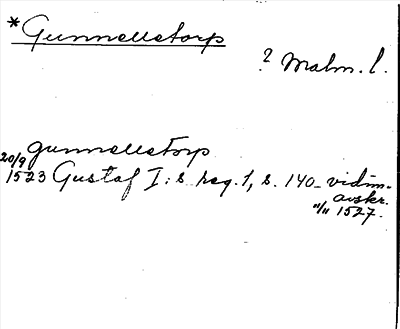 *Gunnelletorp
? Malm. l.
gunnelletorp
20/9
1523 Gustaf I:s reg. 1, s. 140 - vidim.
avskr.
"/11 1527.